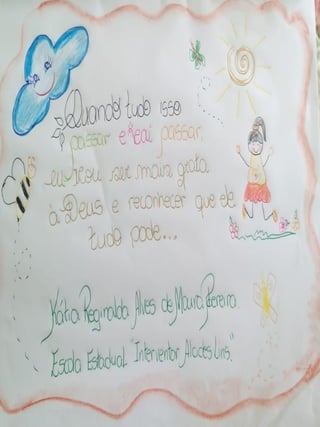 Quando tudo isso
passar e vai passar,
eu vou ser mais grata
à Deus e reconhecer que ele
tudo pode...
Kátia Reginalda Alves de Moura Pereira
Escola Estadual "Interventor Alcides Lins."